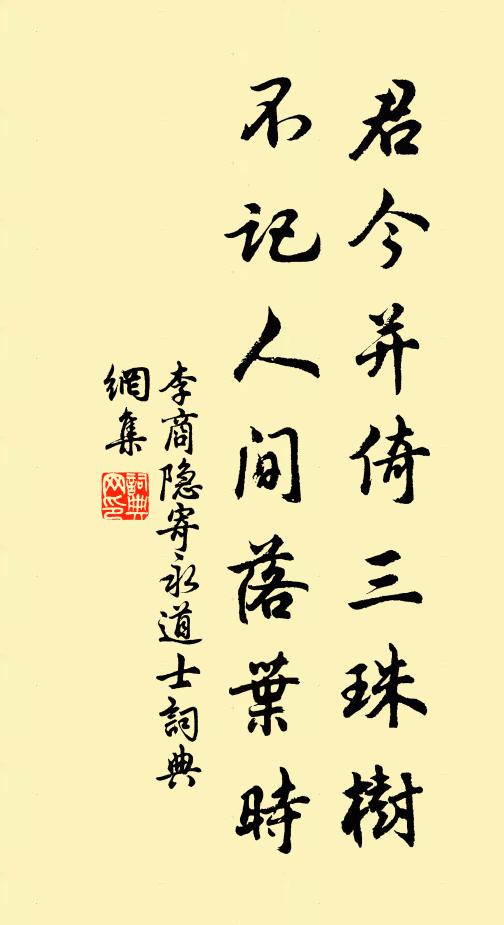 君今并倚三珠樹
不记人间落葉時
李商隐寄永道士詞典
網集
詞典
网印